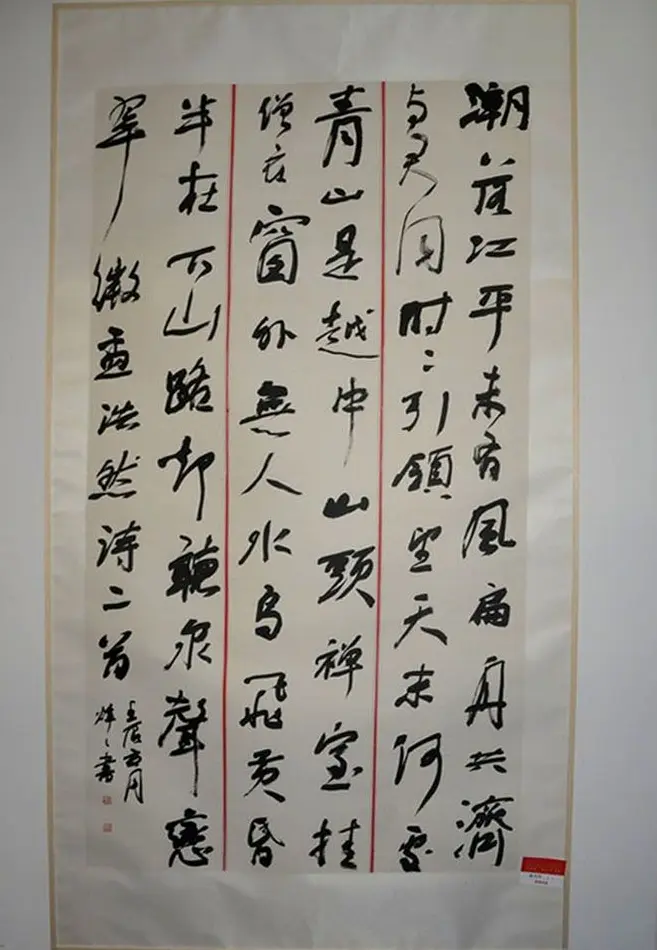 潮落江平未有風扁舟共濟
与君同时々引領望天末何處
青山是越中山頭禅室挂
僧衣窗外無人水鸟飛黄昏
半在下山路却聽泉聲戀
翠微孟浩然詩二首
壬辰月
書